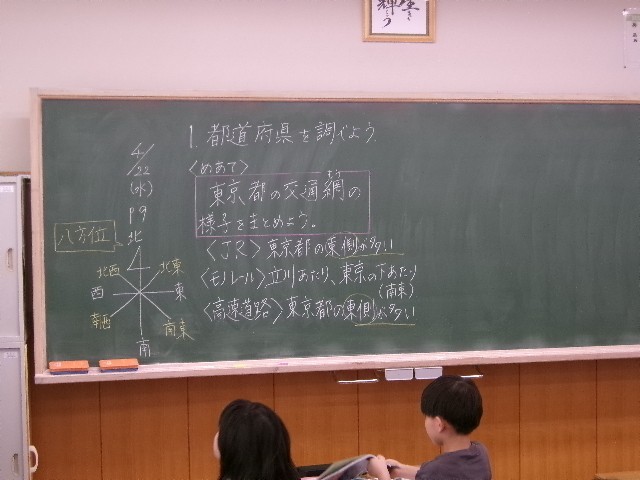 1. 都道府県を調べよう。
4/22
(水)
P9
<めあて>
東京都の交通網の
様子をまとめよう。
<JR> 東京都の東側が多い
<モノレール> 立川あたり、東京の下あたり
(南東)
<高速道路> 東京都の東側が多い
八方位
北
北西
北東
西
東
南西
南東
南